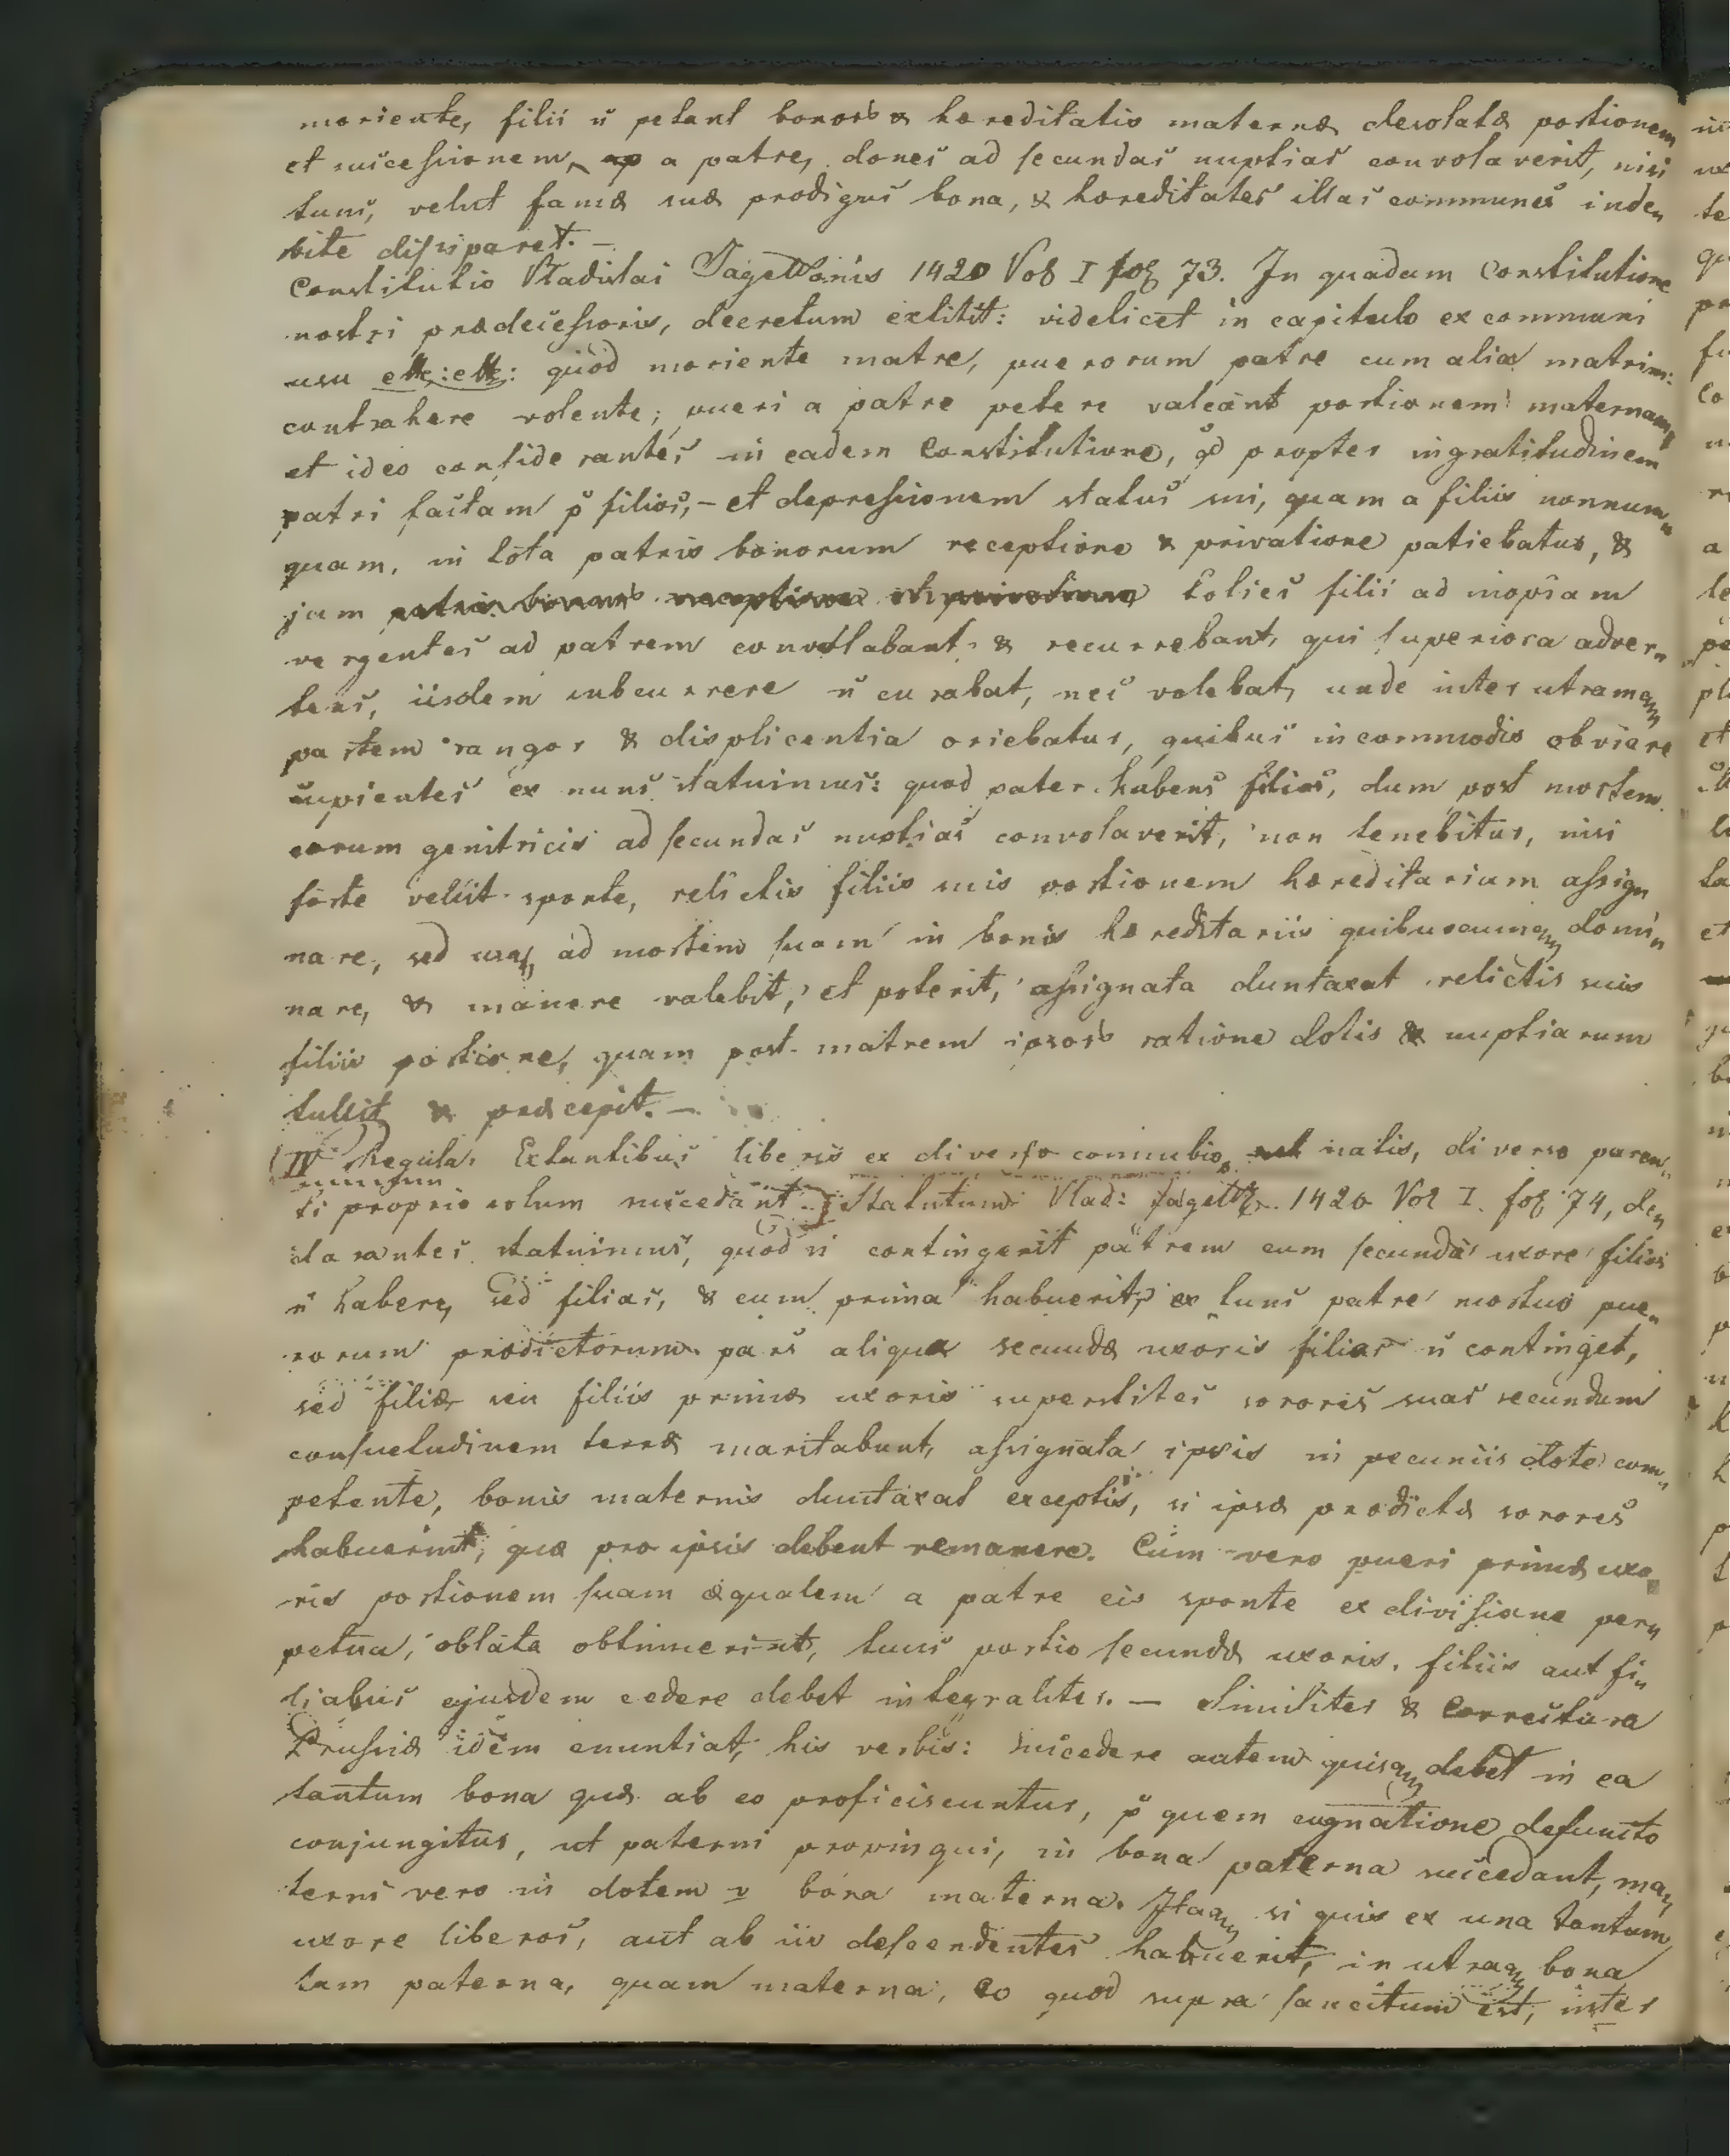 moriente, filii ñ petant bonorb & hæreditatis maternæ desolatæ portionem
et successionem, a patre, donec ad secundas nuptias convolaverit, nisi
tunc, velut famæ suæ prodigus bona, & hæreditates illas communes inde„
bite dissiparet. —
Constitutio Vladislai Jagellonis 1420 Vol I fol 73. In quadam Constitutione
nostri prædecessoris, decretum extitit: videlicet in capitulo ex communi
usu etc: etc: quod moriente matre, puerorum patre cum alia matrim:
contrahere volente; pueri a patre petere valeant portionem maternam,
et ideo considerantes in eadem Constitutione, qd propter ingratitudinem
patri factam p filios, – et depressionem status sui, quam a filiis nonnum„
quam, in tota patris bonorum receptione & privatione patiebatur, &
jam patris bonorb receptione et privatione toties filii ad inopiam
vergentes ad patrem convolabant & recurrebant, qui superiora adver„
tens, iisdem subcurrere ñ curabat, nec volebat, unde inter utramq
partem rangor & displicentia oriebatur, quibus incommodis obviare
cupientes ex nunc statuimus: quod pater habens filios, dum post mortem
eorum genitricis ad secundas nuptias convolaverit, non tenebitur, nisi
forte velit sponte, relictis filiis suis portionem hæreditarium assign
nare, sed usq ad mortem suam in bonis hæreditariis quibuscumq domi„
nare, & manere valebit, et poterit, assignata duntaxat relictis suis
filiis portione, quam post matrem ipsorb ratione dotis & nuptiarum
tullit & præcepit. —
IV Regula. Extantibus liberis ex diverso connubio natis, diverso paren„
ti proprio solum succedant. Statutum Vlad: Jagell. 1420 Vol I. fol 74, de„
darantes statuimus, quod si contingerit patrem cum secunda uxore filios
ñ habere, sed filias, & cum prima habuerit, ex tunc patre mortuo pue„
rorum prædictorum pars aliqua secundæ uxoris filias ñ continget,
sed filiæ seu filiis primæ uxoris superstites sorores suas secundum
consuetudinem terræ maritabunt, assignata ipsis in pecuniis dote com„
petente, bonis maternis duntaxat exceptis, si ipsæ prædictæ sorores
habuerint, quæ pro ipsis debent remanere. Cum vero pueri primæ uxo„
ris portionem suam æqualem a patre eis sponte ex divisione per„
petua, oblata obtinuerint, tunc portio secundæ uxoris, filiis aut fi„
liabus ejusdem cedere debet integraliter. — Similiter & Correctura
Prussiæ idem enuntiat, his verbis: succedere autem quisq debet in ea
tantum bona quæ ab eo proficiscuntur, p quem cognatione defuncto
conjungitur, ut paterni propinqui, in bona paterna succedant, ma„
terni vero in dotem v bona materna. Itaq si quis ex una tantum
uxore liberos, aut ab iis descendentes habuerit, in utraq bona
tam paterna, quam materna, eo quod supra sancitum est, inter